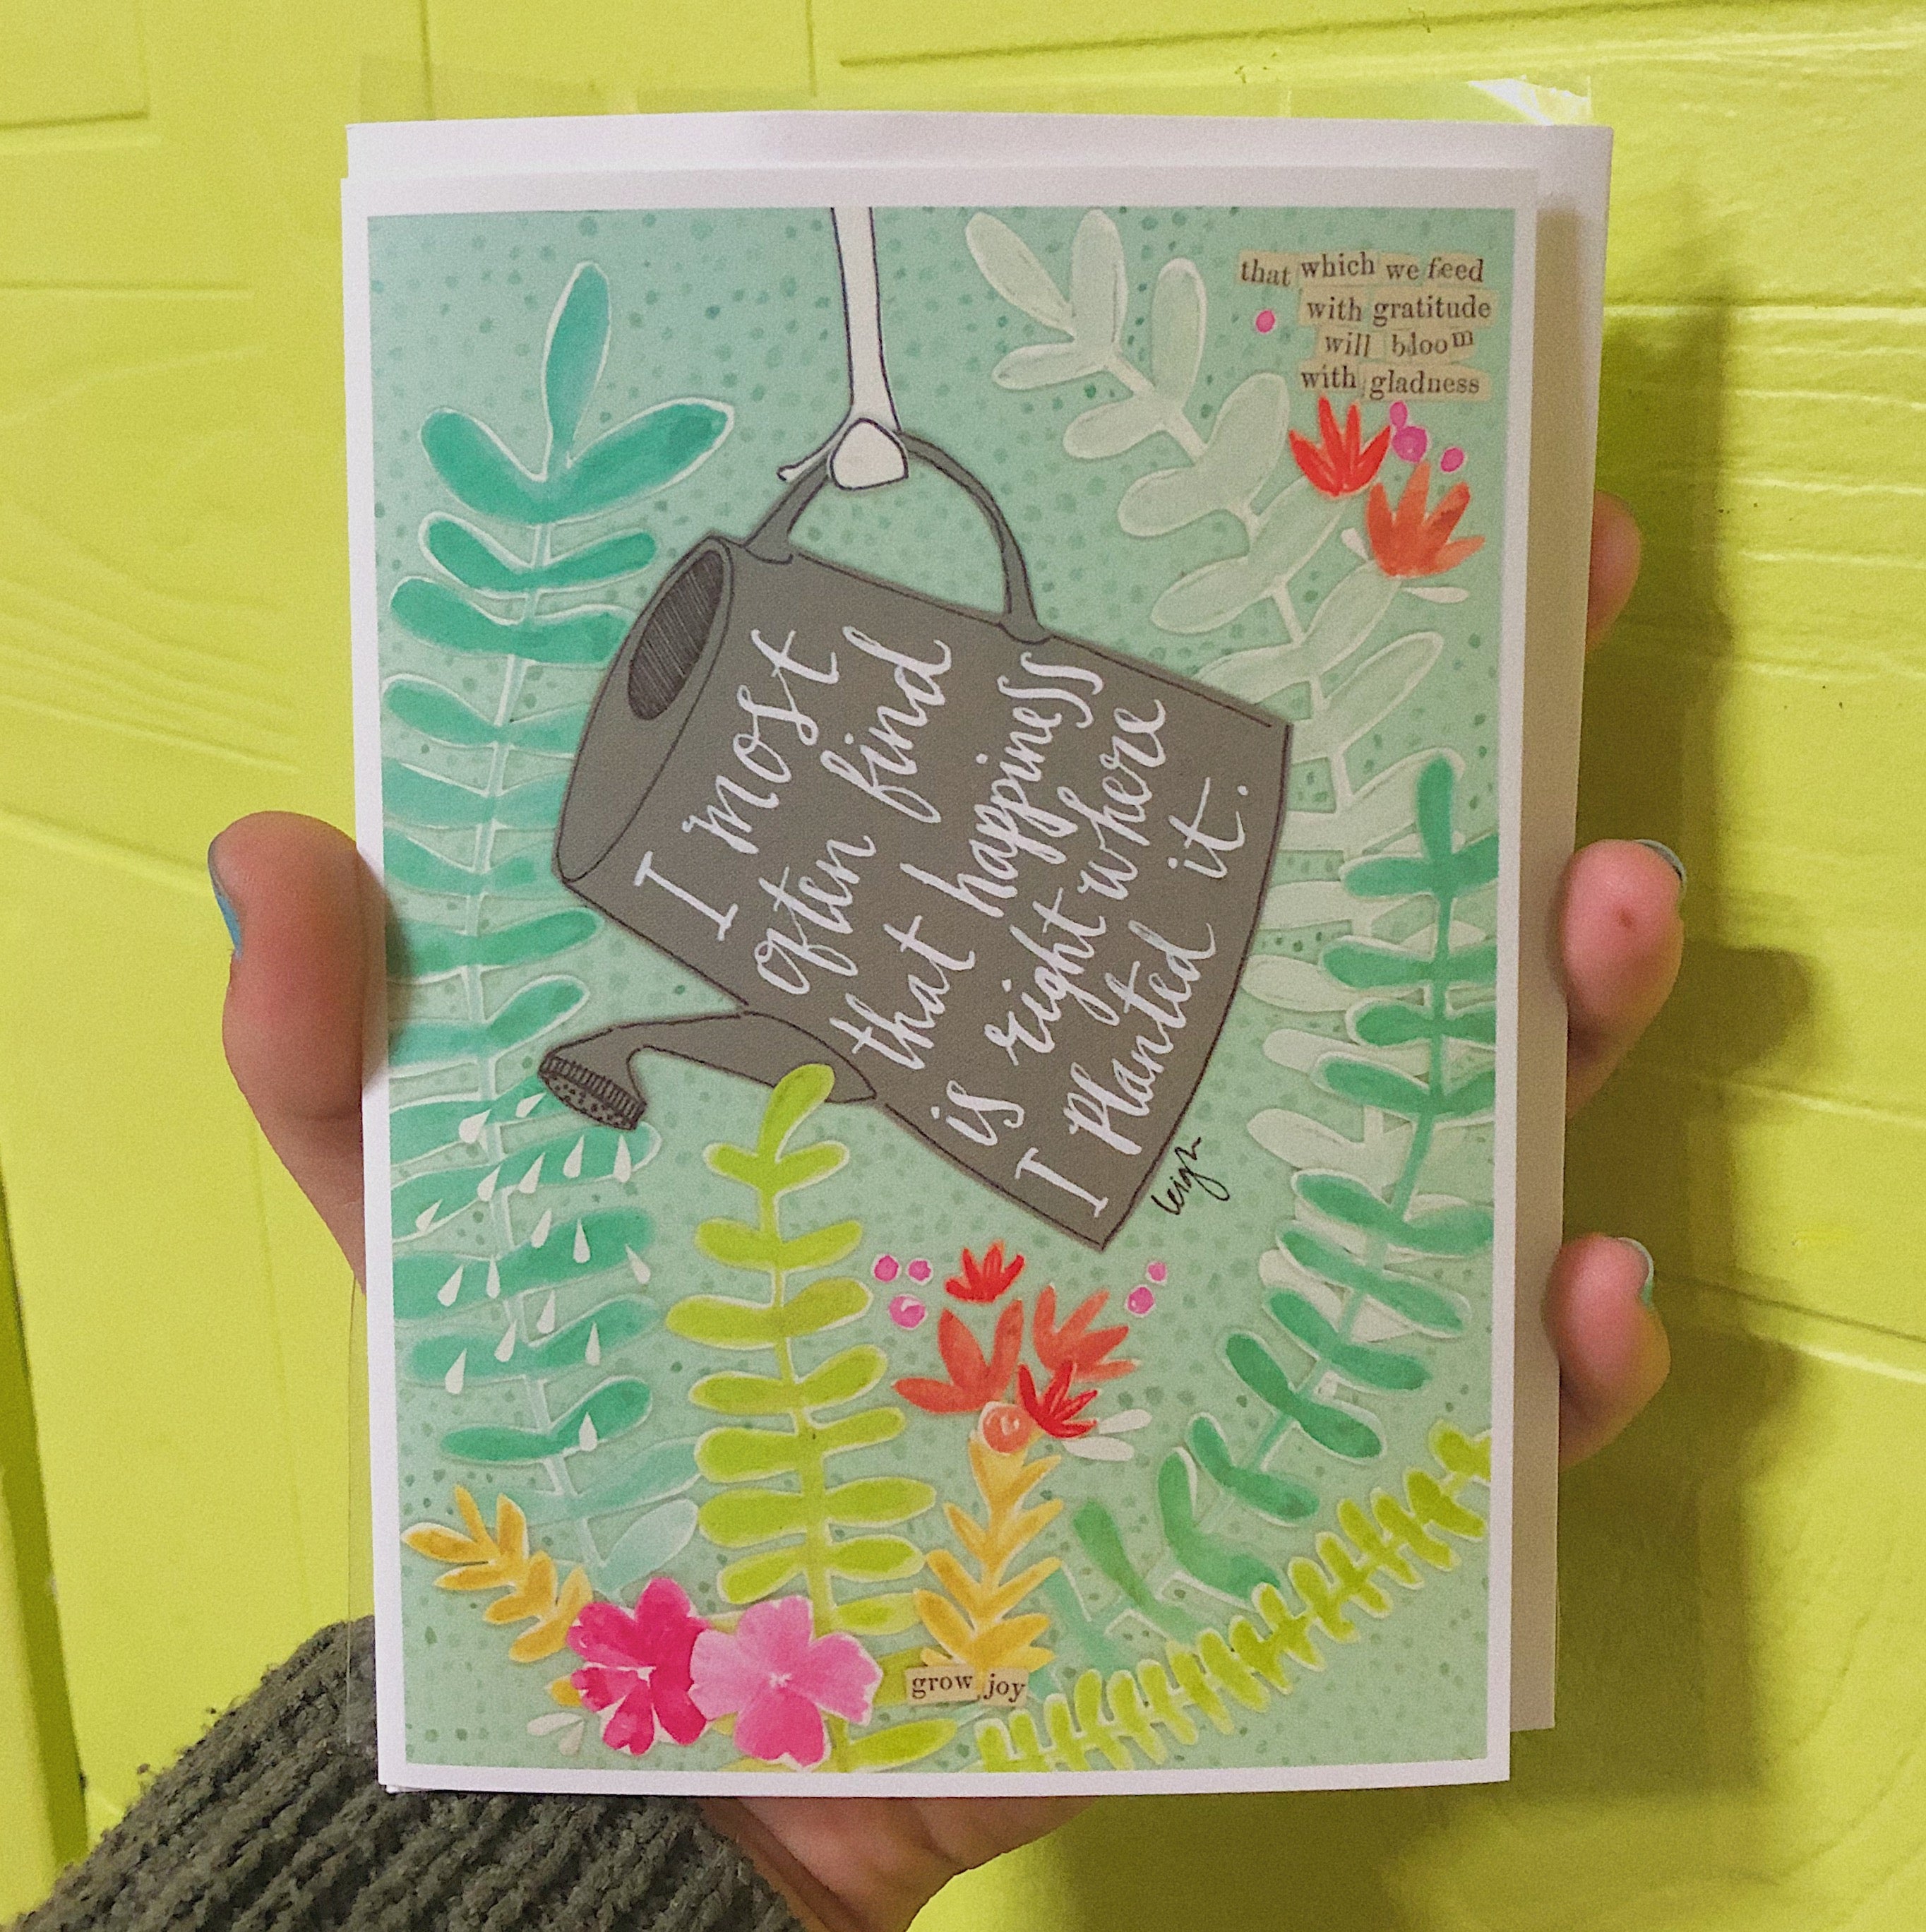 that which we feed
with gratitude
will bloom
with gladness
I most
often find
that happiness
is right where
I Planted it.
leigh
grow joy